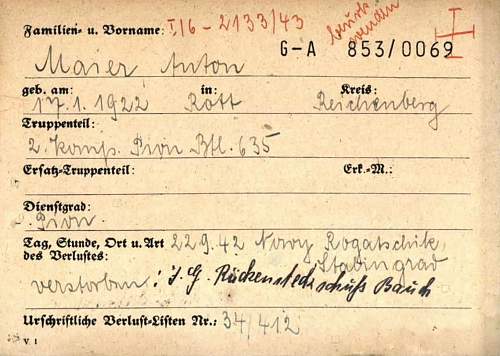 Familien- u. Vorname: I/6 - 2133/43
G-A 853/0069
Maier Anton
geb. am: in: Kreis:
17.1.1922 Rott Reichenberg
Truppenteil:
2. Komp. Pion Btl. 635
Ersatz-Truppenteil: Erk.-M.:
Dienstgrad:
Pion.
Tag, Stunde, Ort u. Art 22.9.42 Nowy Rogatschik
des Verlustes: Stalingrad
verstorben: I.G. Rückensteckschuß Bauch
Urschriftliche Verlust-Listen Nr.: 34/412
V. 1